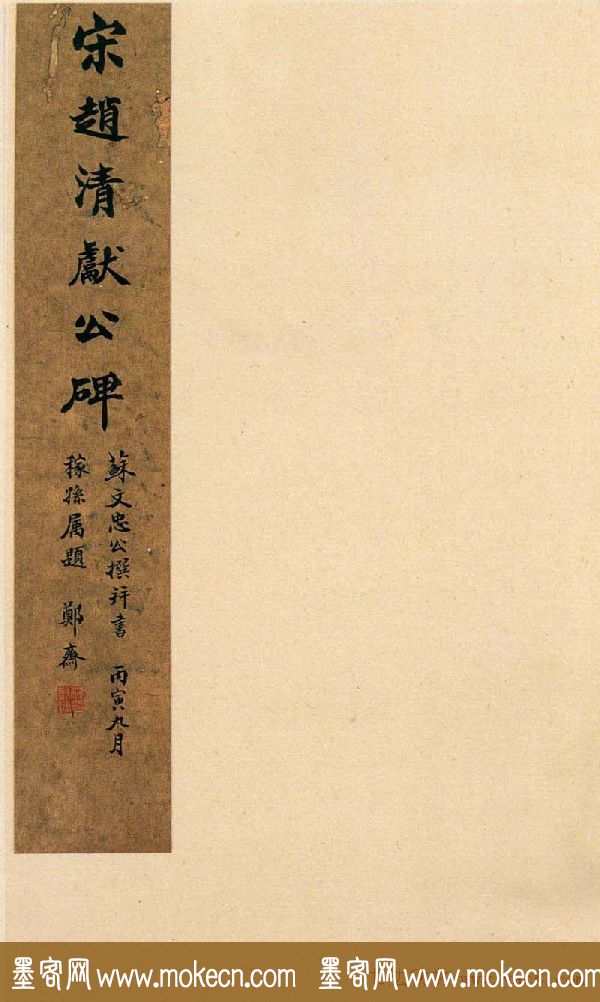 宋趙清獻公碑
蘇文忠公撰并書 丙寅九月
稼孫属題 鄭齋
墨客网 www.mokecn.com 墨客网 www.mokecn.com